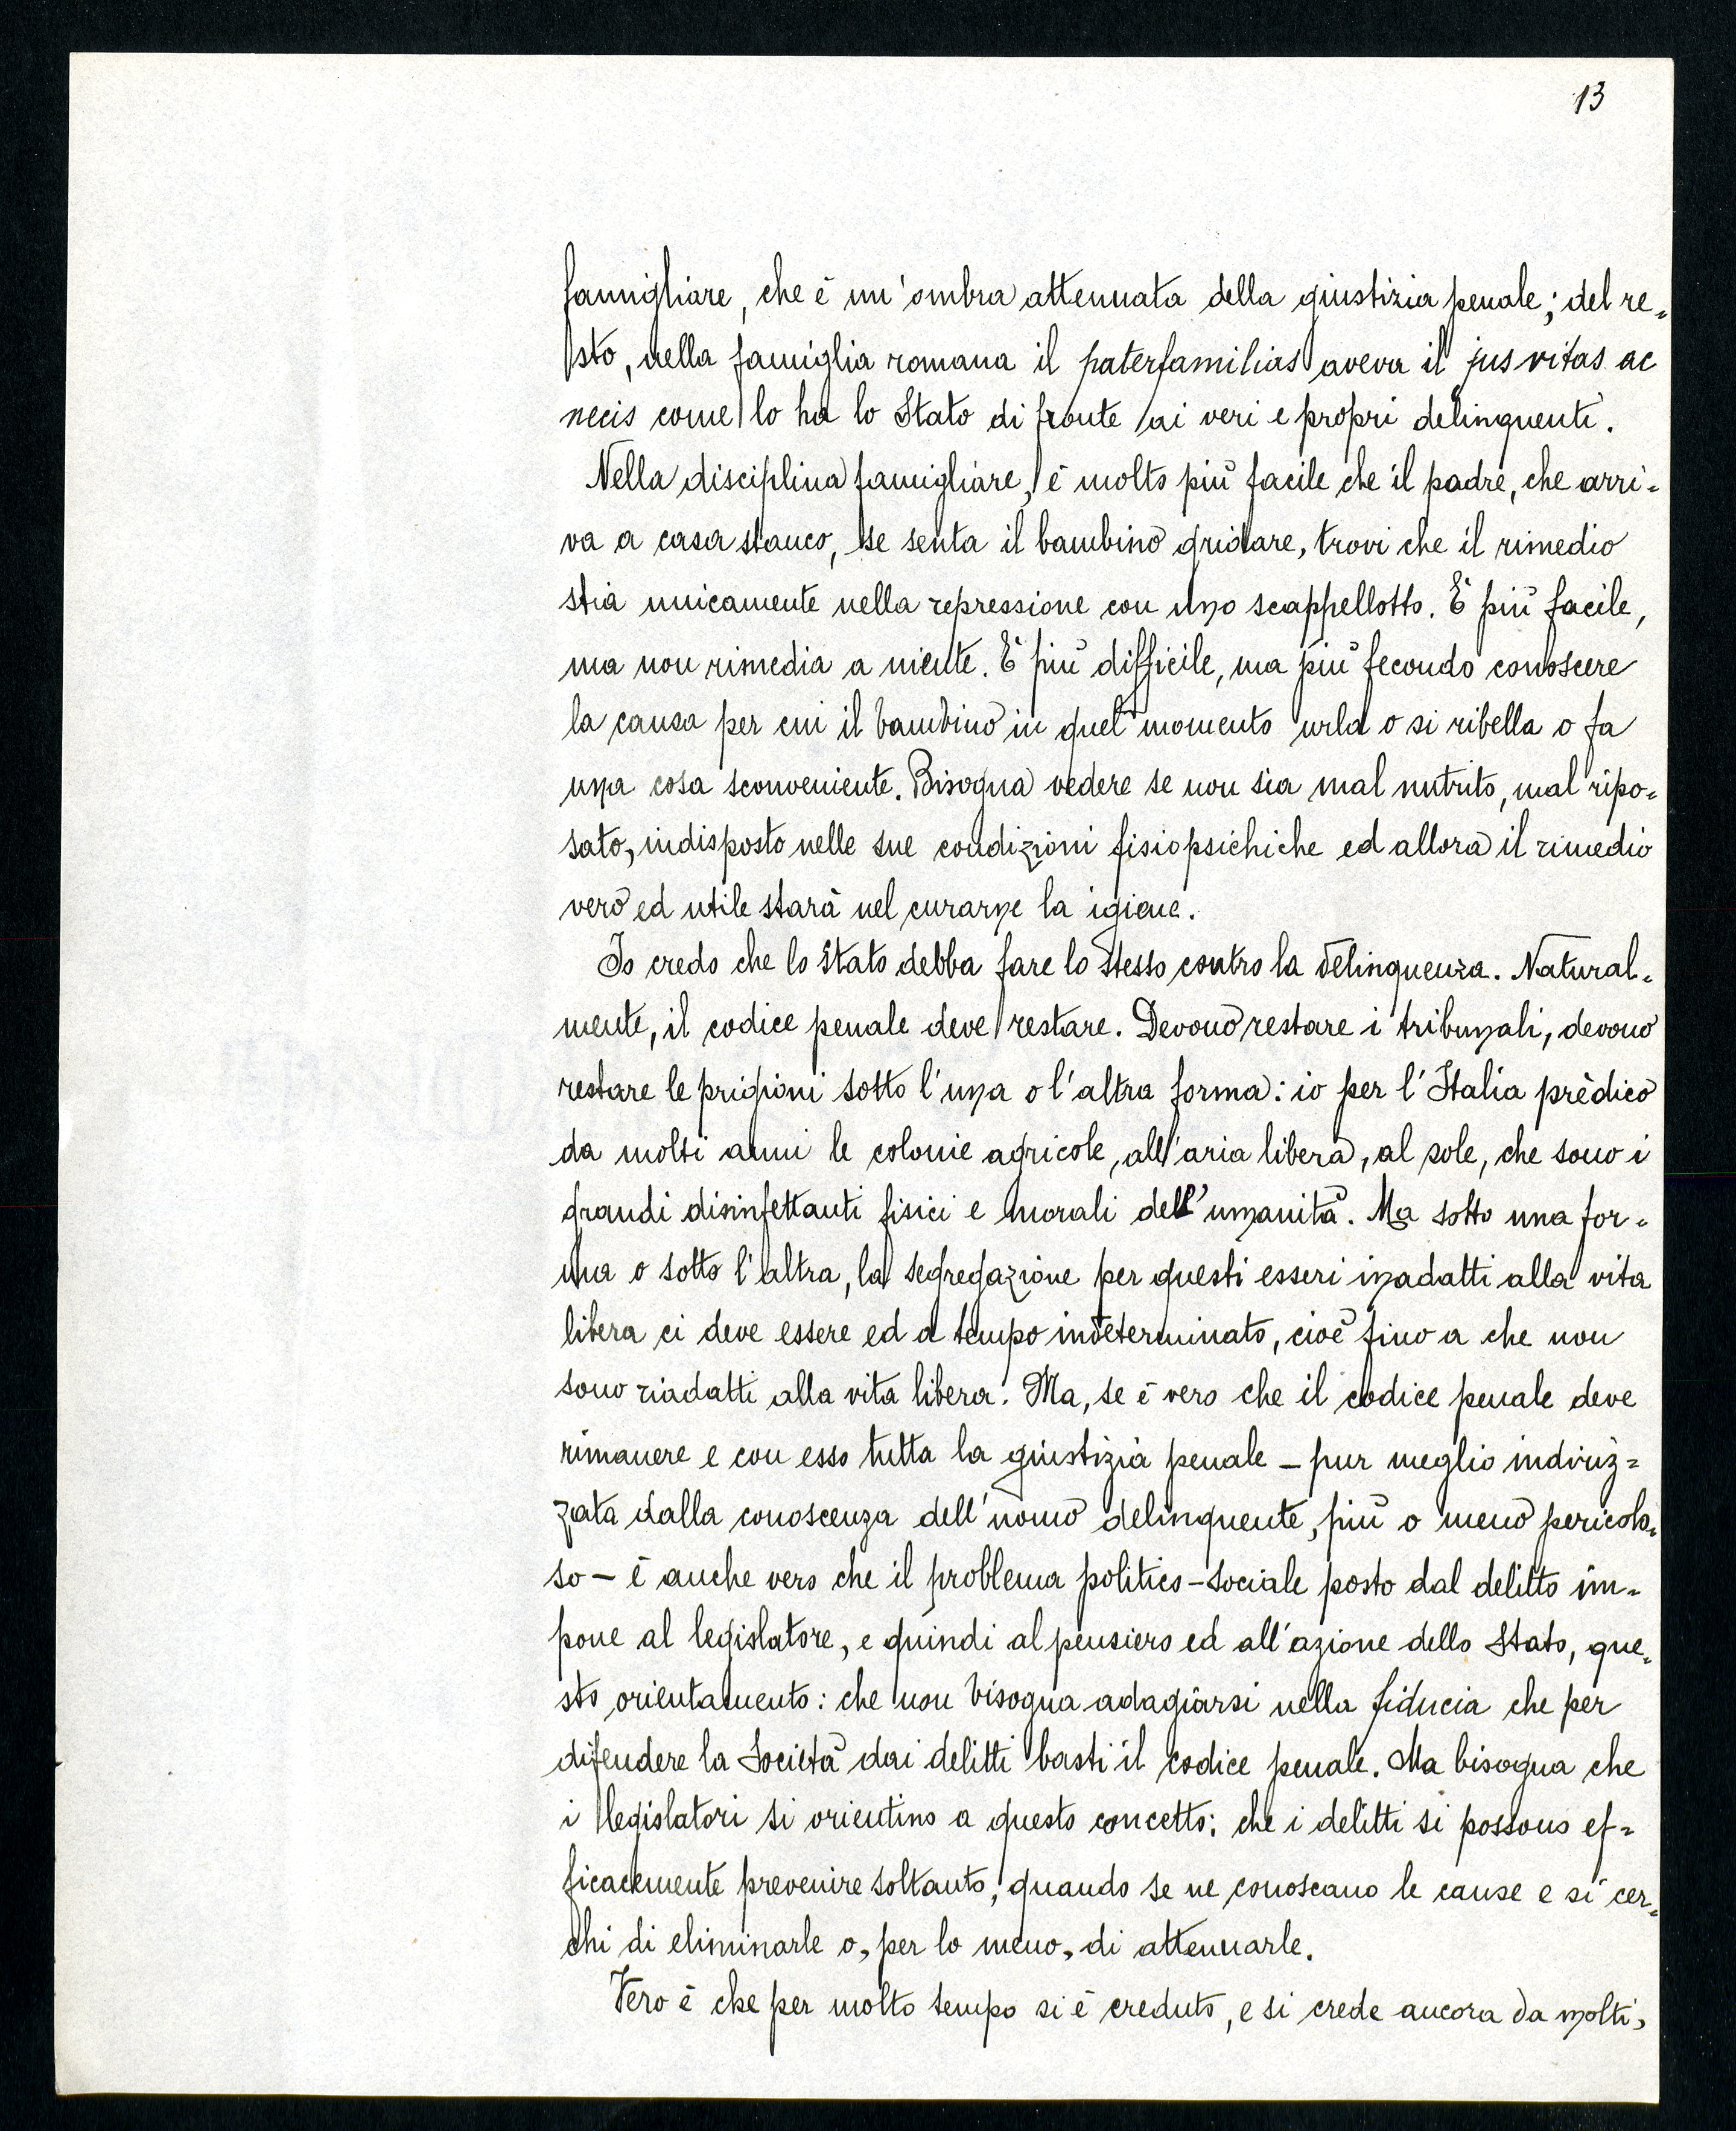 13
famigliare, che è un'ombra attenuata della giustizia penale; del re=
sto, nella famiglia romana il paterfamilias aveva il jus vitas ac
necis come lo ha lo Stato di fronte ai veri e propri delinquenti.
Nella disciplina famigliare, è molto più facile che il padre, che arri=
va a casa stanco, se senta il bambino gridare, trovi che il rimedio
stia unicamente nella repressione con uno scappellotto. È più facile,
ma non rimedia a niente. È più difficile, ma più fecondo conoscere
la causa per cui il bambino in quel momento urla o si ribella o fa
una cosa sconveniente. Bisogna vedere se non sia mal nutrito, mal ripo=
sato, indisposto nelle sue condizioni fisiopsichiche ed allora il rimedio
vero ed utile starà nel curarne la igiene.
Io credo che lo Stato debba fare lo stesso contro la delinquenza. Natural=
mente, il codice penale deve restare. Devono restare i tribunali, devono
restare le prigioni sotto l'una o l'altra forma: io per l'Italia prèdico
da molti anni le colonie agricole, all'aria libera, al sole, che sono i
grandi disinfettanti fisici e morali dell'umanità. Ma sotto una for=
ma o sotto l'altra, la segregazione per questi esseri inadatti alla vita
libera ci deve essere ed a tempo indeterminato, cioè fino a che non
sono riadatti alla vita libera. Ma, se è vero che il codice penale deve
rimanere e con esso tutta la giustizia penale - pur meglio indiriz=
zata dalla conoscenza dell'uomo delinquente, più o meno pericolo=
so - è anche vero che il problema politico-sociale posto dal delitto im=
pone al legislatore, e quindi al pensiero ed all'azione dello Stato, que=
sto orientamento: che non bisogna adagiarsi nella fiducia che per
difendere la Società dai delitti basti il codice penale. Ma bisogna che
i legislatori si orientino a questo concetto: che i delitti si possono ef=
ficacemente prevenire soltanto, quando se ne conoscano le cause e si cer=
chi di eliminarle o, per lo meno, di attenuarle.
Vero è che per molto tempo si è creduto, e si crede ancora da molti,